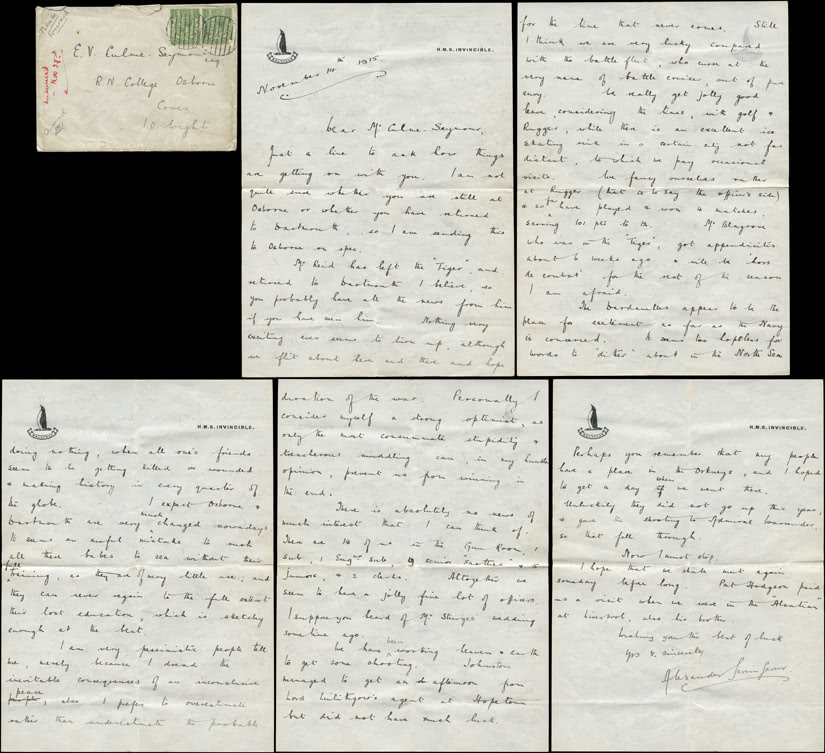 E. V. Culme-Seymour
esq
R. N. College Osborne
Cowes
I. o. Wight
H.M.S. INVINCIBLE.
November 14th 1915.
Dear Mr Culme-Seymour,
Just a line to ask how things
are getting on with you. I am not
quite sure whether you are still at
Osborne, or whether you have returned
to Dartmouth, so I am sending this
to Osborne on spec.
Mr Reid has left the "Tiger", and
returned to Dartmouth I believe, so
you probably have all the news from him
if you have seen him. Nothing very
exciting ever seems to turn up, although
we flit about here and there and hope
for the time that never comes. Still
I think we are very lucky compared
with the battle fleet, who curse at the
very name of battle cruiser, out of pure
envy. We really get jolly good
leave, considering the times, with golf &
Rugger, while there is an excellent ice
skating rink in a certain city not far
distant, to which we pay occasional
visits. We fancy ourselves rather
at Rugger (that is to say the officer's side)
& so far have played & won 4 matches,
scoring 101 pts to 12. Mr Blagrove
who was in the "Tiger", got appendicitis
about 6 weeks ago & will be 'hors
de combat' for the rest of the season
I am afraid.
The Dardanelles appear to be the
place for excitement as far as the Navy
is concerned. It seems too hopeless for
words to "dither" about in the North Sea
H.M.S. INVINCIBLE.
doing nothing, when all one's friends
seem to be getting killed or wounded
& making history in every quarter of
the globe. I expect Osborne &
Dartmouth are very much changed nowadays.
It seems an awful mistake to rush
all these babes to sea without their
full
training, as they are of very little use, and
they can never regain to the full extent
their lost education, which is sketchy
enough at the best.
I am very pessimistic people tell
me, merely because I dread the
inevitable consequences of an inconclusive
peace, also I prefer to overestimate
rather than underestimate the probable
duration of the war. Personally I
consider myself a strong optimist, as
only the most consummate stupidity &
treacherous muddling can, in my humble
opinion, prevent us from winning in
the end.
There is absolutely no news of
much interest that I can think of.
There are 14 of us in the Gun Room, 1
Sub, 1 Engr Sub, senior snotties & 5
Juniors, & 2 clerks. Altogether we
seem to have a jolly fine lot of officers.
I suppose you heard of Mr Sturges' wedding
some time ago.
We have been working heaven & earth
to get some shooting. Johnston
managed to get an afternoon from
Lord Linlithgow's agent at Hopetoun
but did not have much luck.
H.M.S. INVINCIBLE.
Perhaps you remember that my people
have a place in the Orkneys, and I hoped
to get a day when we went there.
Unluckily they did not go up this year,
& gave the shooting to Admiral Warrender,
so that fell through.
Now I must stop.
I hope that we shall meet again
someday before long. Pat Hodgson paid
us a visit when we were in the "Alsatian"
at Liverpool, also his brother.
Wishing you the best of luck
Yrs v. sincerely